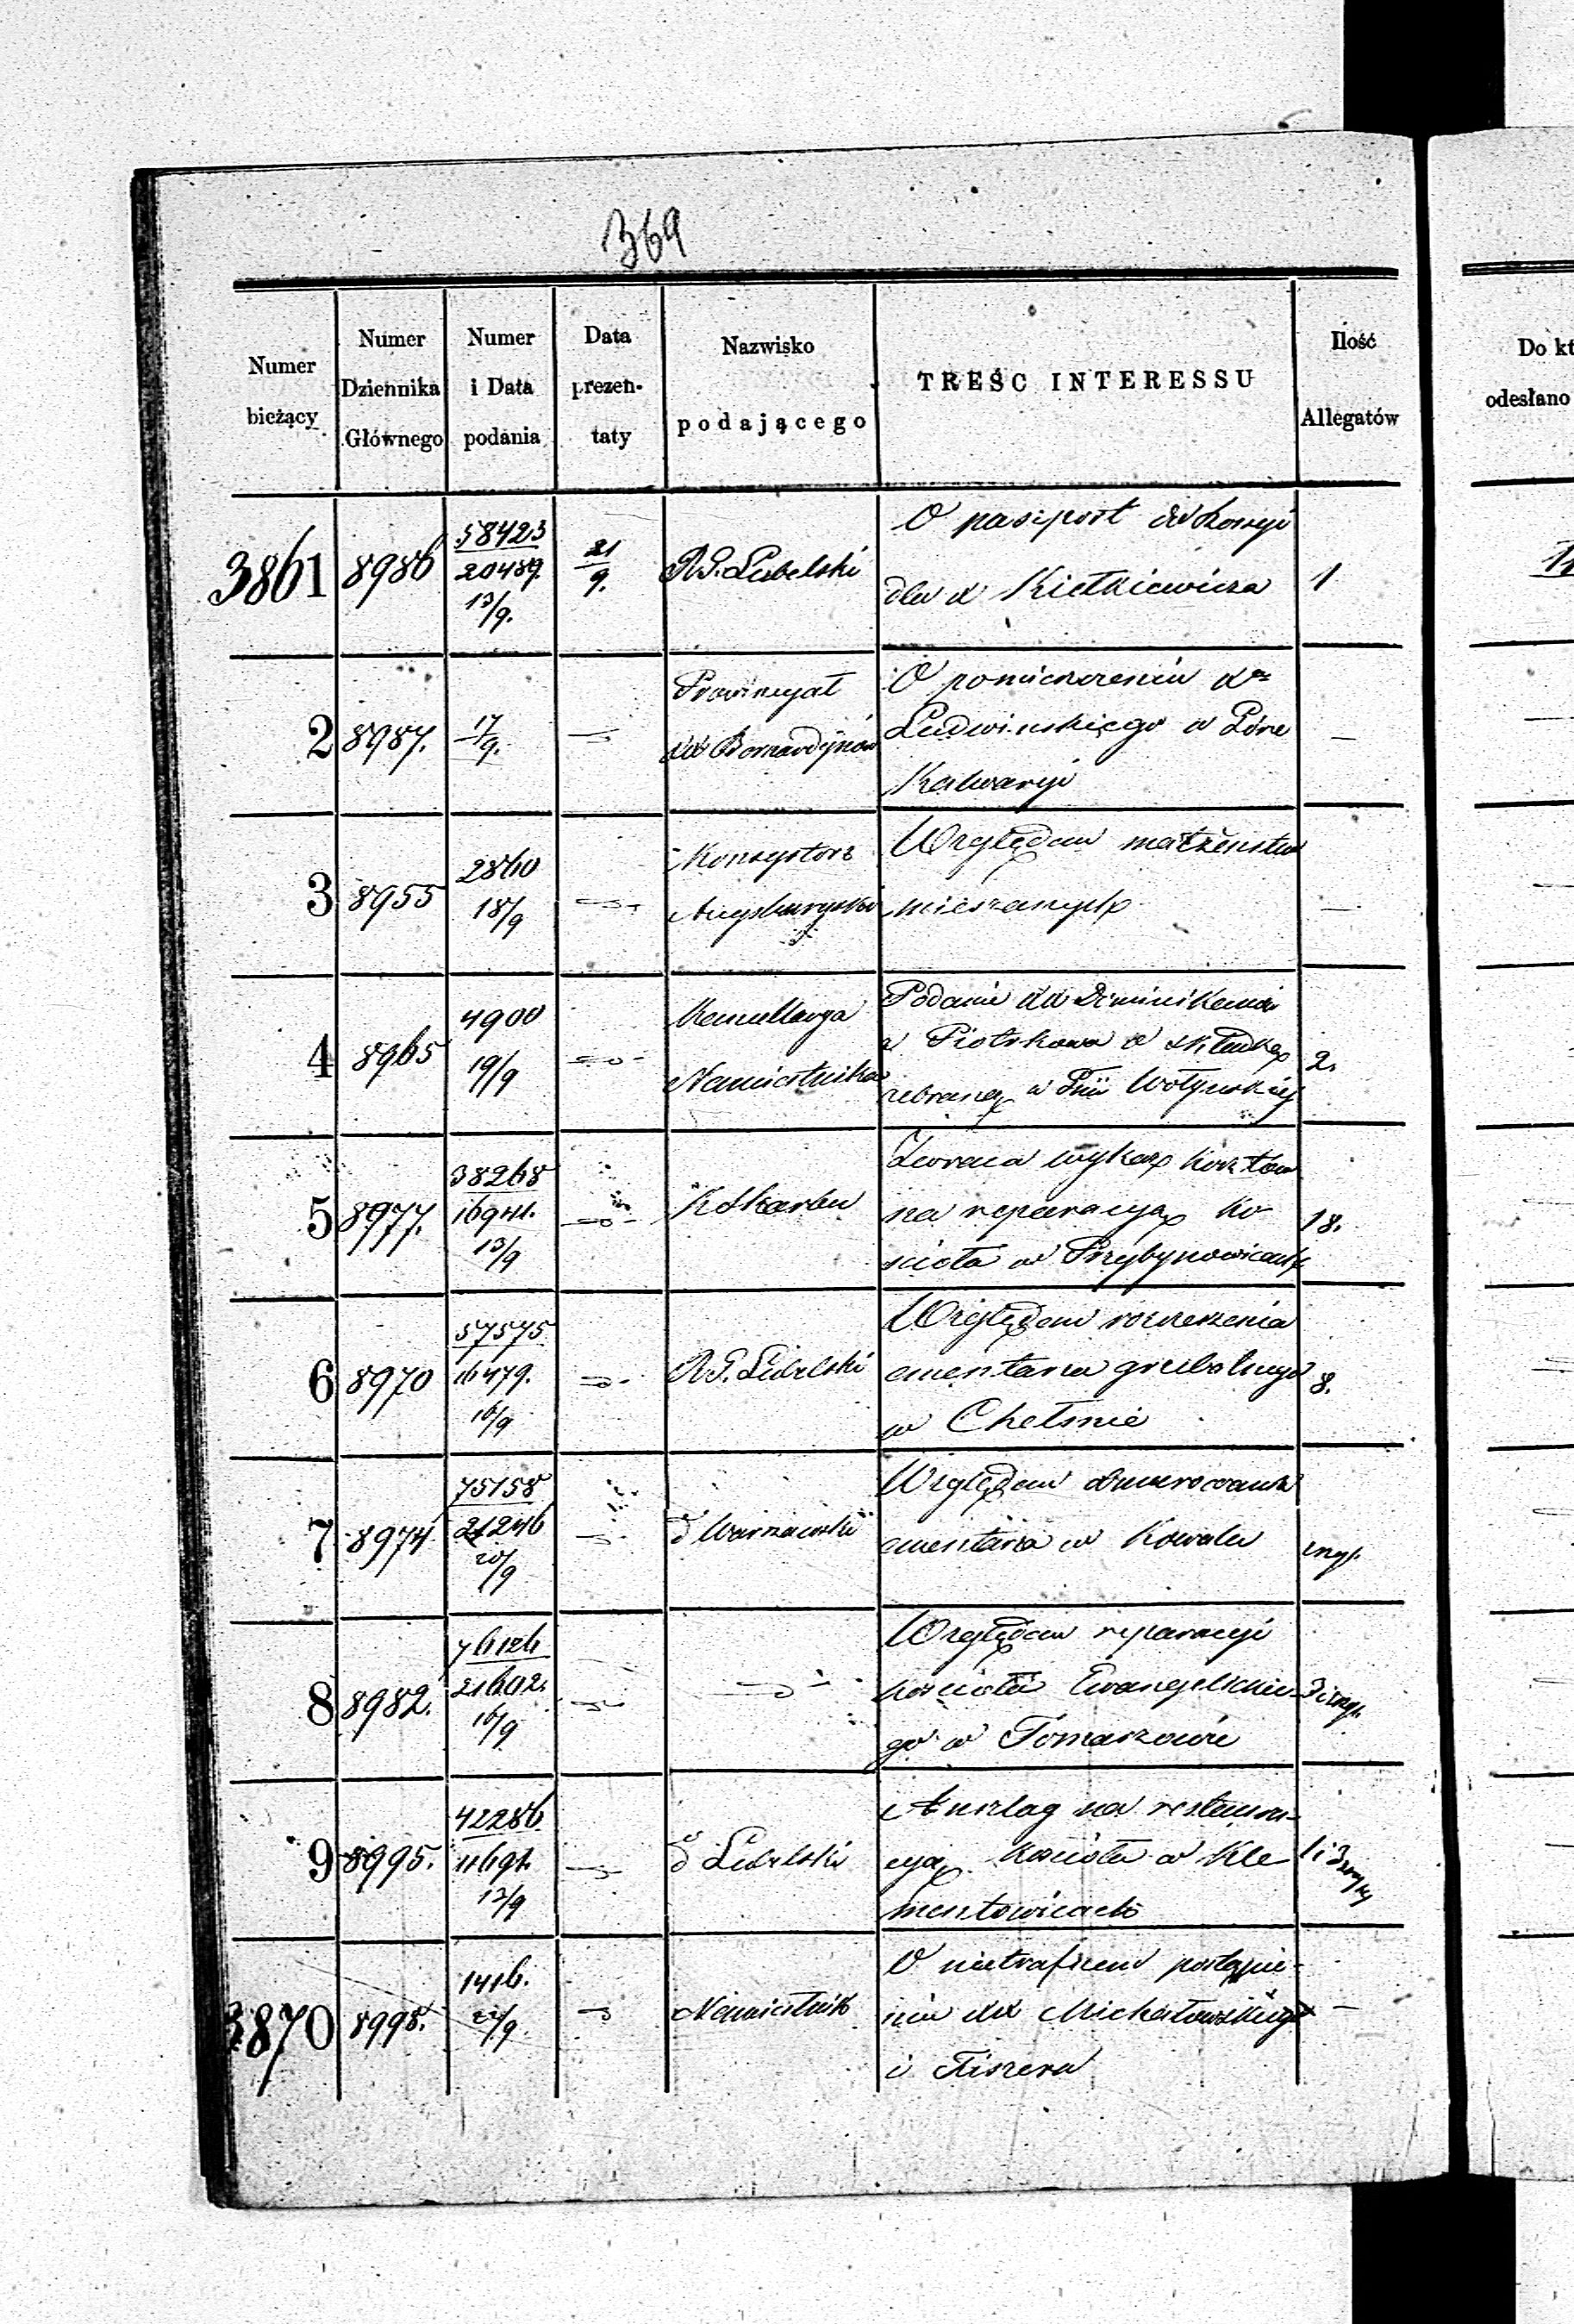 369
Numer bieżący
Numer Dziennika Głównego
Numer i Data podania
Data prezentaty
Nazwisko podającego
TREŚC INTERESSU
Ilość Allegatów
Do kt
odesłano
3861 8986 58423 20489. 13/9. 21/9. R.G. Lubelski
O paszport do Rossyi
dla X Kiełkiewicza
1
2 8987. 17/9.
Prowincyał
XX Bernardynów
O pomieszczeniu Xa
Ludwińskiego w Górze
Kalwaryi
—
3 8955 2860 18/9
Konsystorz
Augsburgski
Względem małżeństw
mieszanych
—
4 8965 4900 19/9
Kancellarya
Namiestnika
Podanie XX Dominikanów
z Piotrkowa o składkę
zebraną w Gnii Wołyńskiej
2.
5 8977. 38268 16941. 13/9
K Skarbu
Zwraca wykaz kosztów
na reparacyą Ko-
ścioła w Przybynowicach
18.
6 8970 57575 16479. 16/9
R.G. Lubelski
Względem rozszerzenia
cmentarza grzebalnego
w Chełmie
8.
7 8974 75158 21246 20/9
d° Warszawski
Względem obmurowania
cmentarza w Kowalu
8 8982. 76126 21602. 16/9
Względem reparacyi
kościoła Ewangelickie-
go w Tomaszowie
9 8995. 42286 11691. 13/9
d° Lubelski
Anszlag na restaura-
cyą Kościoła w Kle-
mentowicach
3870 8998. 1416. 21/9
Namiestnik
O nietrafnem postąpie-
niu XX Michałowskiego
i Fiszera
—